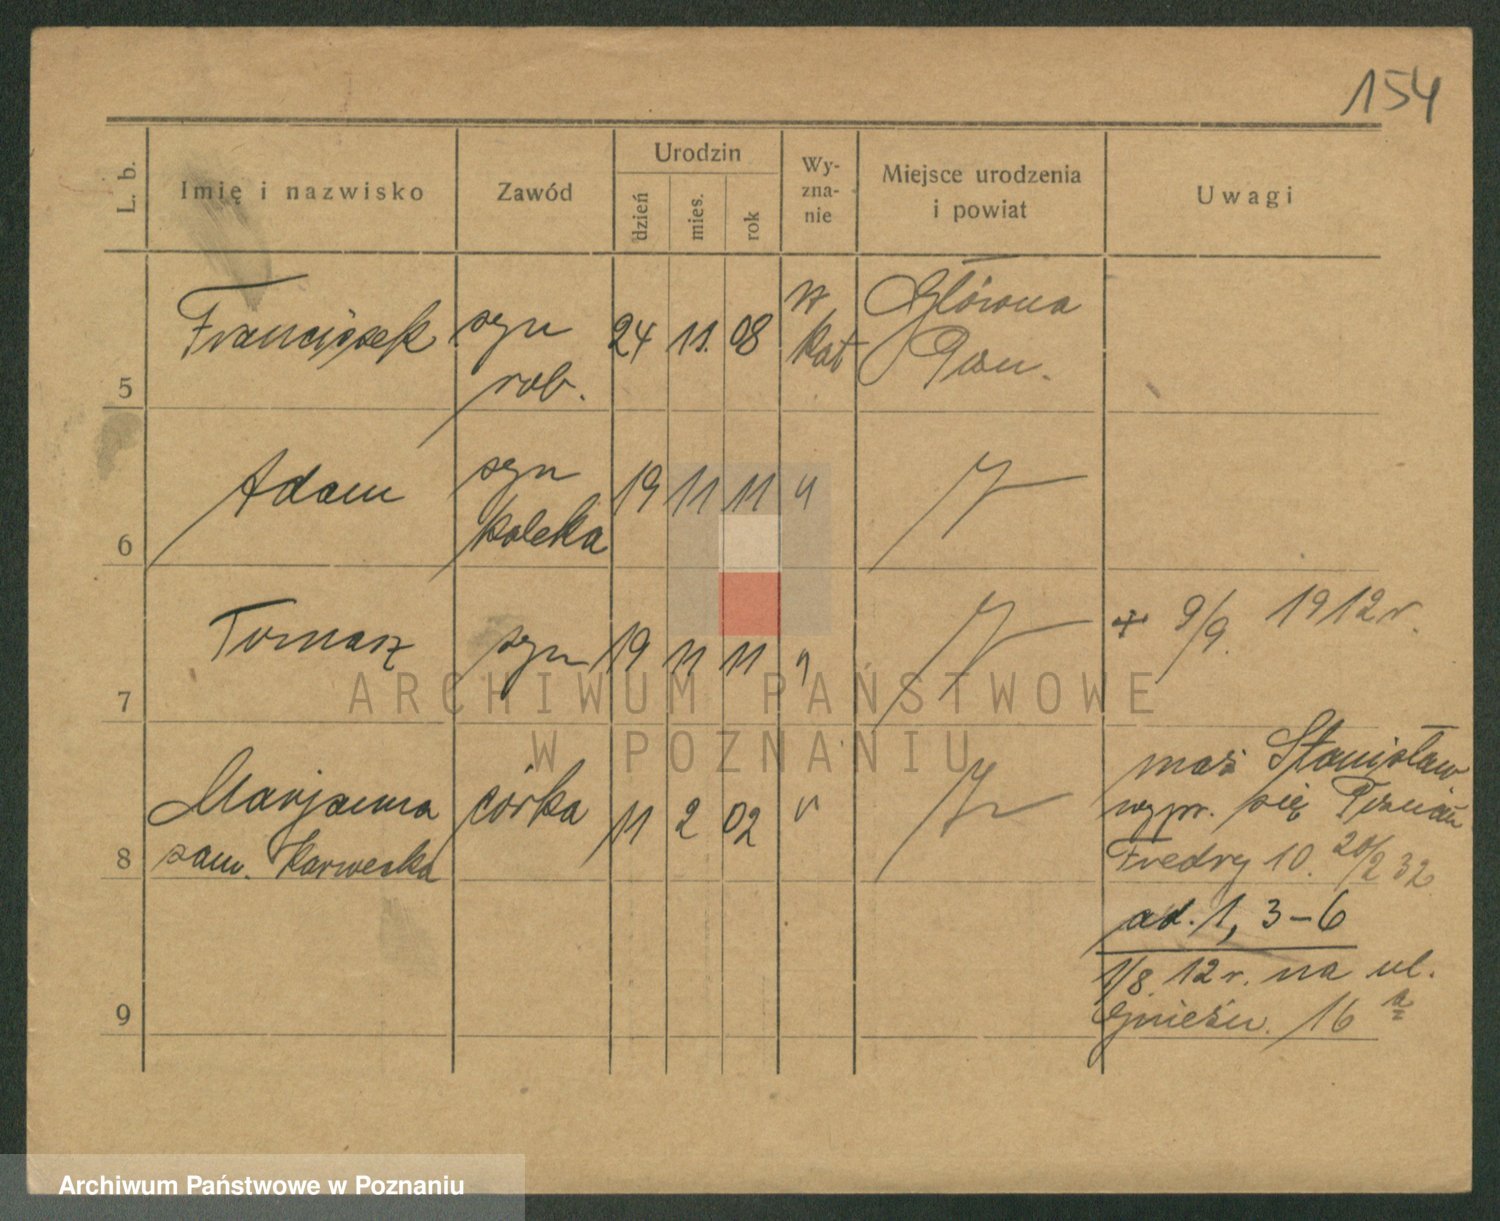 154
L. b.
Imię i nazwisko
Zawód
Urodzin
dzień
mies.
rok
Wy-
zna-
nie
Miejsce urodzenia
i powiat
Uwagi
5
Franciszek
syn
rob.
24
11.
08
rz
kat
Główna
Pozn.
6
Adam
syn
kaleka
19
11
11
"
7
Tomasz
syn
19
11
11
"
+ 9/9. 1912 r.
8
Marjanna
zam. Karweska
córka
11
2
02
"
mąż Stanisław
wypr. się Poznań
Fredry 10. 20/2 32
9
ad. 1, 3-6
1/8. 12 r. na ul.
Gnieźn. 16 a
ARCHIWUM PAŃSTWOWE
W POZNANIU
Archiwum Państwowe w Poznaniu